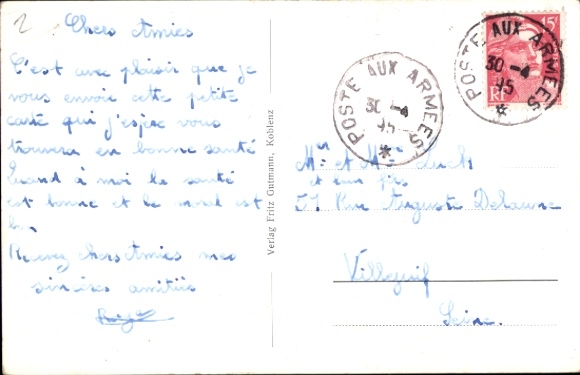 2
Chers Amies
C'est avec plaisir que je
vous envoie cette petite
carte qui j'espere vous
trouvera en bonne santé
Quand à moi la santé
est bonne et le moral est
bon
Recevez chers Amies mes
sincères amitiés
Verlag Fritz Gutmann, Koblenz
POSTE AUX ARMEES
30 -4
POSTE AUX ARMEES
30 -4
15F
RF
Mr et Mme
et leur fils
51 Rue Auguste Delaune
Villejuif
Seine.